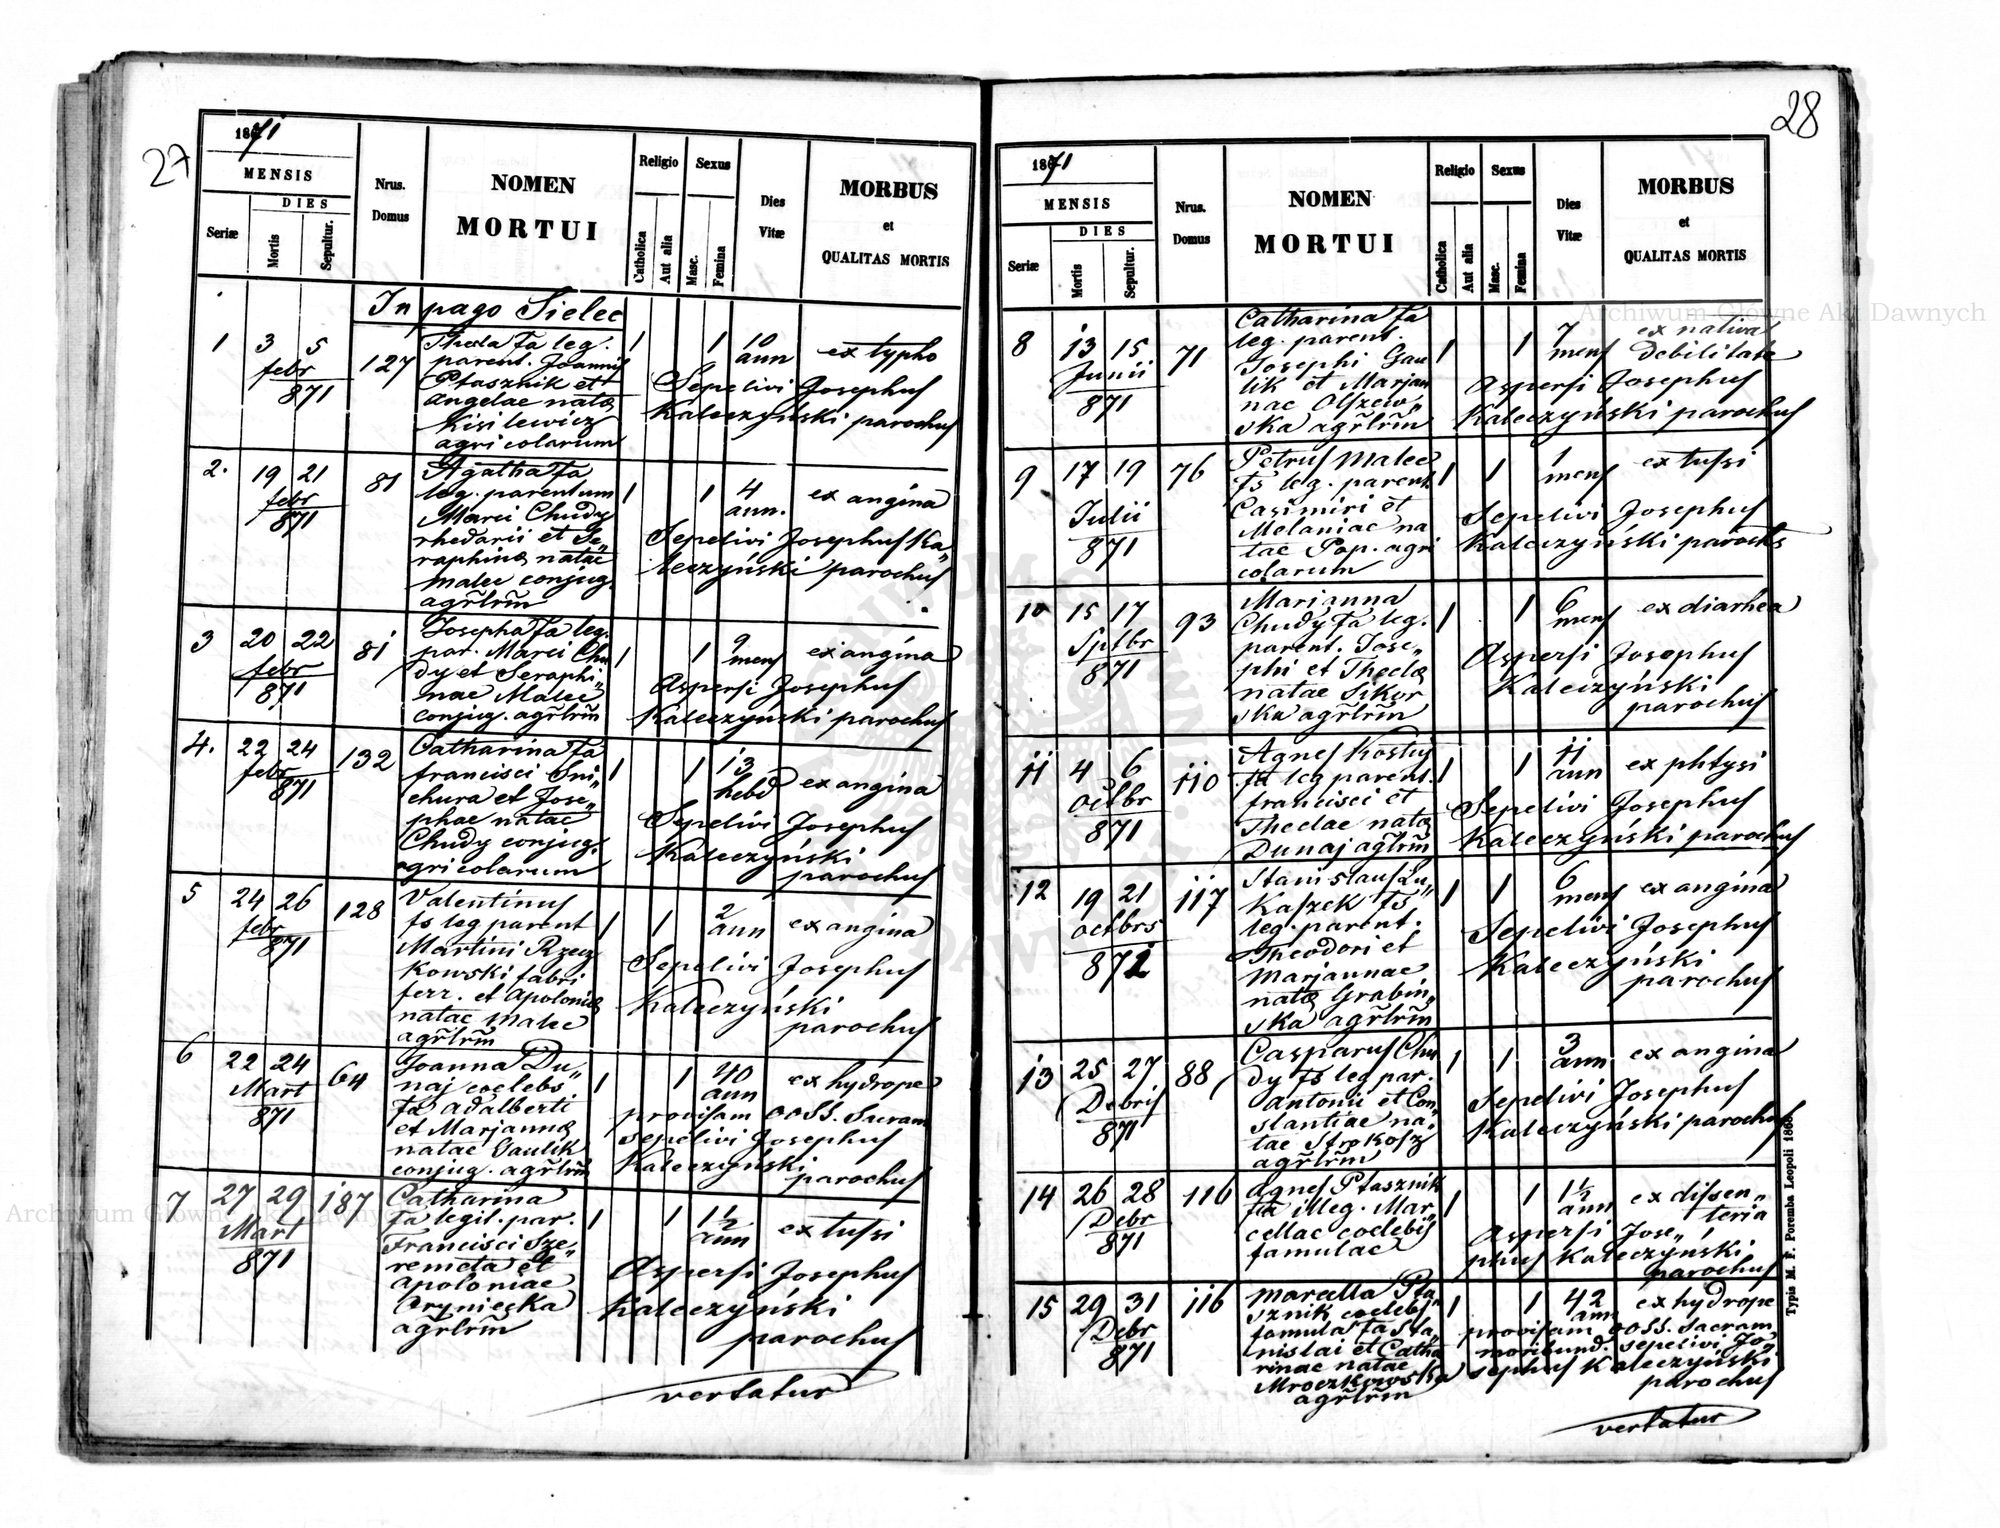 27
1871
MENSIS
DIES
Seriæ
Mortis
Sepultur.
Nrus.
Domus
NOMEN
MORTUI
Religio
Catholica
Aut alia
Sexus
Masc.
Femina
Dies
Vitæ
MORBUS
et
QUALITAS MORTIS
In pago Sielec
1 3 5 febr 871 127
Thecla fa leg.
parent. Joannis
Ptasznik et
Angelae natæ
Kisilewicz
agricolarum
1 1 10 ann ex typho
Sepelivi Josephus
Kaleczyński parochus
2. 19 21 febr 871 81
Agatha fa
leg. parentum
Marci Chudy
rhedarii et Se„
raphinæ natae
Malec conjug.
agr̃lrm̃
1 1 4 ann. ex angina
Sepelivi Josephus Ka„
leczyński parochus
3 20 22 febr 871 81
Josepha fa leg.
par. Marci Chu
dy et Seraphi„
nae Malec
conjug. agr̃lrm̃
1 1 9 mens ex angina
Aspersi Josephus
Kaleczyński parochus
4. 22 24 febr 871 132
Catharina fa
francisci Sni„
chura et Jose„
phae natae
Chudy conjug.
agricolarum
1 1 13 hebd ex angina
Sepelivi Josephus
Kaleczyński
parochus
5 24 26 febr 871 128
Valentinus
fs leg parent
Martini Rzecz
kowski fabri
ferr. et Apoloniæ
natae Malec
agr̃lrm̃
1 1 2 ann ex angina
Sepelivi Josephus
Kaleczyński
parochus
6 22 24 Mart 871 64
Joanna Du„
naj coelebs
fa Adalberti
et Marjannæ
natae Gaulik
conjug. agr̃lrm̃
1 1 40 ann ex hydrope
provisam OOSS. Sacram
sepelivi Josephus
Kaleczyński
parochus
7 27 29 Mart 871 187
Catharina
fa legit. par.
Francisci Sze„
remeta et
Apoloniae
Orynieska
agr̃lrm̃
1 1 1½ ann ex tussi
Aspersi Josephus
Kaleczyński
parochus
vertatur
28
1871
MENSIS
DIES
Seriæ
Mortis
Sepultur.
Nrus.
Domus
NOMEN
MORTUI
Religio
Catholica
Aut alia
Sexus
Masc.
Femina
Dies
Vitæ
MORBUS
et
QUALITAS MORTIS
8 13 15 Junii 871 71
Catharina fa
leg. parent.
Josephi Gau
lik et Marjan
nae Olszew„
ska agr̃lrm̃
1 1 7 mens ex nativa
debilitate
Aspersi Josephus
Kaleczyński parochus
9 17 19 Julii 871 76
Petrus Malec
fs leg. parent.
Casimiri et
Melaniae na
tae Pap. agri
colarum
1 1 1 mens ex tussi
Sepelivi Josephus
Kaleczyński parochus
10 15 17 Sptbr 871 93
Marianna
Chudy fa leg.
parent. Jose„
phi et Theclæ
natae Sikor
ska agr̃lrm̃
1 1 6 mens ex diarhea
Aspersi Josephus
Kaleczyński
parochus
11 4 6 octbr 871 110
Agnes Kostuj
fa leg parent.
francisci et
Theclae natæ
Dunaj agr̃lrm̃
1 1 11 ann ex phtysi
Sepelivi Josephus
Kaleczyński parochus
12 19 21 octbrs 872 117
Stanislaus Lu„
kaszek fs
leg. parent.
Theodori et
Marjannae
natæ Grabin„
ska agr̃lrm̃
1 1 6 mens ex angina
Sepelivi Josephus
Kaleczyński
parochus
13 25 27 Debris 871 88
Casparus Chu
dy fs leg par.
Antonii et Con„
stantiae na„
tae
agr̃lrm̃
1 1 3 ann ex angina
Sepelivi Josephus
Kaleczyński parochus
14 26 28 Debr 871 116
Agnes Ptasznik
fa illeg. Mar„
cellae coelebis
famulae
1 1 1½ ann ex dissen„
teria
Aspersi Jose„
phus Kaleczyński
parochus
15 29 31 Debr 871 116
Marcella Pta„
sznik coelebs
famula fa Sta„
nislai et Catha
rinae natae
Mroczkowska
agr̃lrm̃
1 1 42 ann ex hydrope
provisam OOSS. Sacram
moribund. sepelivi Jo„
sephus Kaleczyński
parochus
vertatur
Typis M. F. Poremba Leopoli 1866
Archiwum Główne Akt Dawnych
Archiwum Główne Akt Dawnych